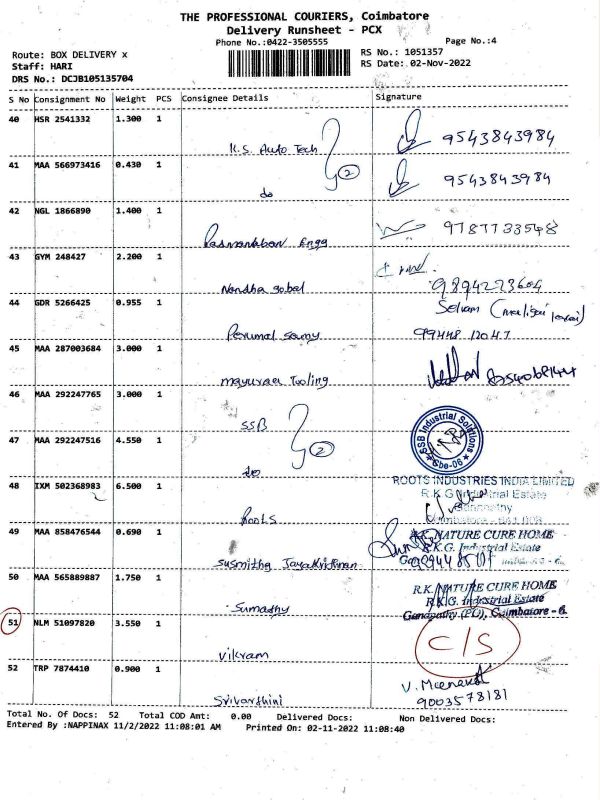 THE PROFESSIONAL COURIERS, Coimbatore
Delivery Runsheet - PCX
Phone No.:0422-3505555 Page No.:4
Route: BOX DELIVERY x RS No.: 1051357
Staff: HARI RS Date: 02-Nov-2022
DRS No.: DCJB105135704
S No Consignment No Weight PCS Consignee Details Signature
40 HSR 2541332 1.300 1
K.S. Auto Tech 9543843984
41 MAA 566973416 0.430 1
do 2 9543843984
42 NGL 1866890 1.400 1
Padmanaban Engg 9787733548
43 GYM 248427 2.200 1
Nandha gobal 9894273604
44 GDR 5266425 0.955 1
Selvam
Perumal Samy 99448 12047
45 MAA 287003684 3.000 1
mayuraa Tooling
46 MAA 292247765 3.000 1
SSB
SSB Industrial Solutions
Cbe-06
47 MAA 292247516 4.550 1
do 2
48 IXM 502368983 6.500 1
ROOTS INDUSTRIES INDIA LIMITED
R.K.G Industrial Estate
Roots
49 MAA 858476544 0.690 1
R.K. NATURE CURE HOME
R.K.G. Industrial Estate
Susmitha Jayakrishnan
50 MAA 565889887 1.750 1
R.K. NATURE CURE HOME
R.K.G. Industrial Estate
Sumathy
Ganapathy (PO), Coimbatore - 6.
51 NLM 51097820 3.550 1
C/S
Vikram
52 TRP 7874410 0.900 1
V. Meena
Srivarthini 9003578181
Total No. Of Docs: 52 Total COD Amt: 0.00 Delivered Docs: Non Delivered Docs:
Entered By :NAPPINAX 11/2/2022 11:08:01 AM Printed On: 02-11-2022 11:08:40